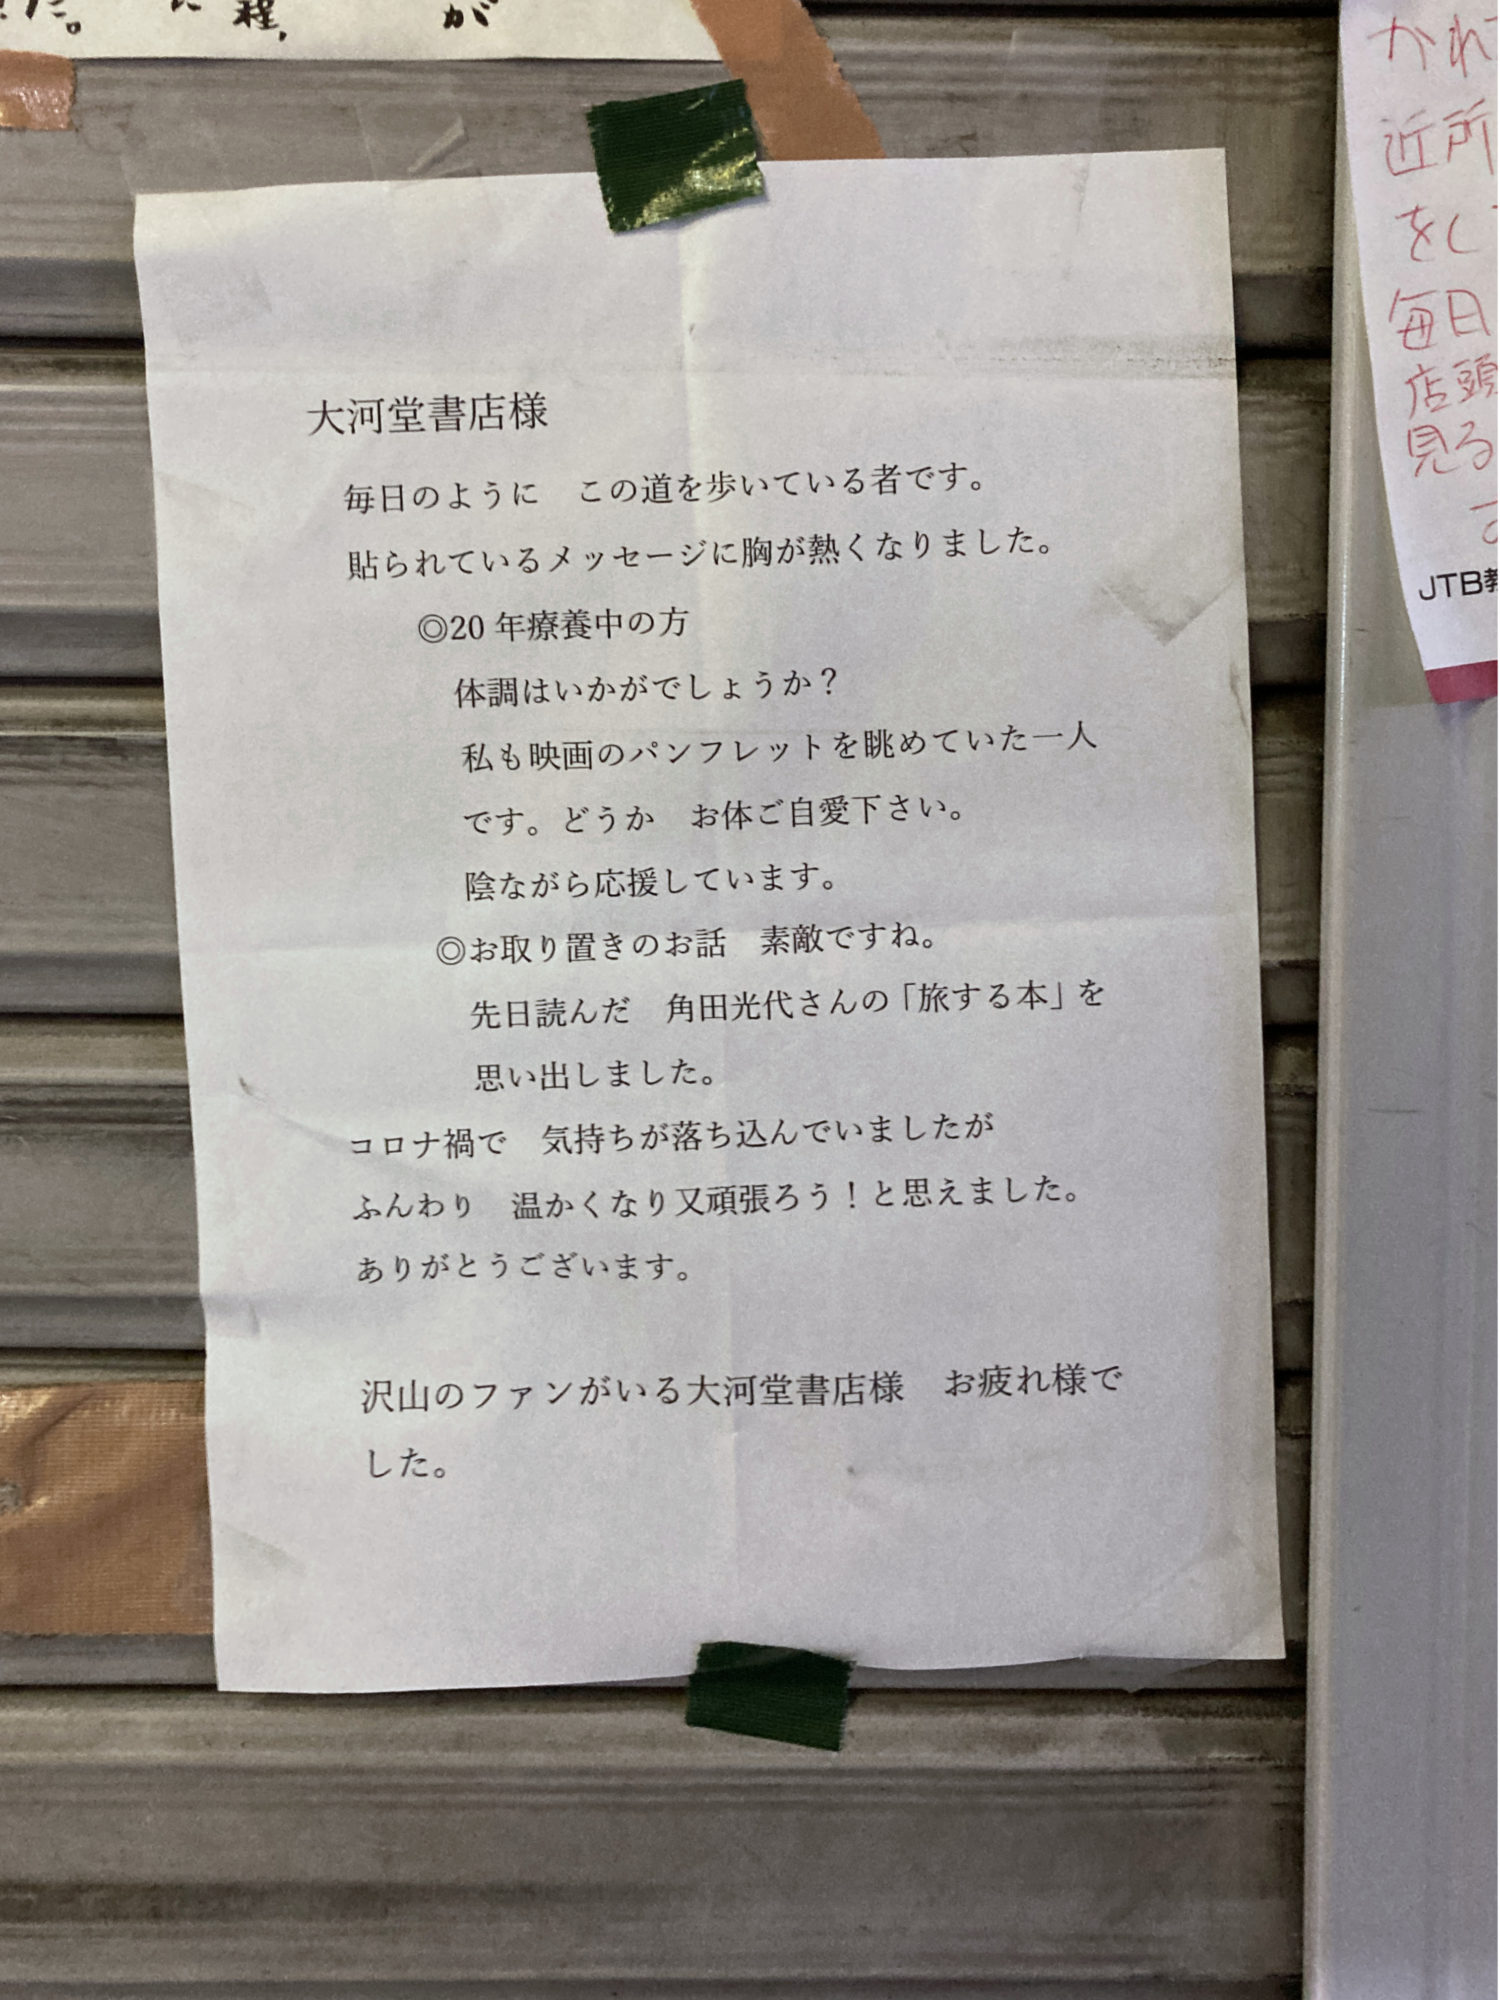 た。
に
程、
が
大河堂書店様
毎日のように　この道を歩いている者です。
貼られているメッセージに胸が熱くなりました。
◎20 年療養中の方
体調はいかがでしょうか？
私も映画のパンフレットを眺めていた一人
です。どうか　お体ご自愛下さい。
陰ながら応援しています。
◎お取り置きのお話　素敵ですね。
先日読んだ　角田光代さんの「旅する本」を
思い出しました。
コロナ禍で　気持ちが落ち込んでいましたが
ふんわり　温かくなり又頑張ろう！と思えました。
ありがとうございます。
沢山のファンがいる大河堂書店様　お疲れ様で
した。
かれ
近所
をし
毎日
店頭
見る
JTB